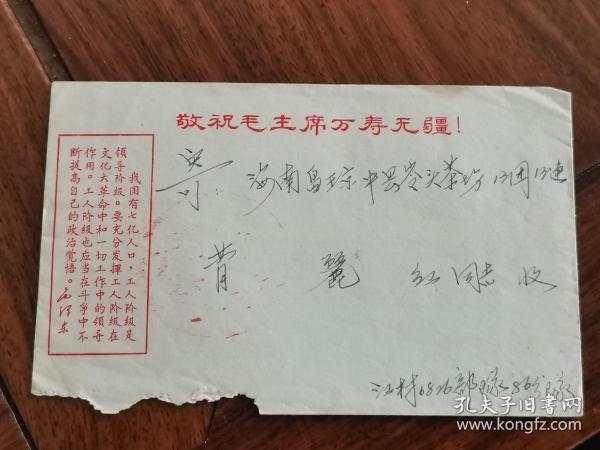 敬祝毛主席万寿无疆!
我国有七亿人口,工人阶级是
领导阶级。要充分发挥工人阶级在
文化大革命中和一切工作中的领导
作用。工人阶级也应当在斗争中不
断提高自己的政治觉悟。
毛泽东
寄:海南岛琼中县岭头茶场13团13连
丽红同志收
6826部队86分队
孔夫子旧书网
www.kongfz.com